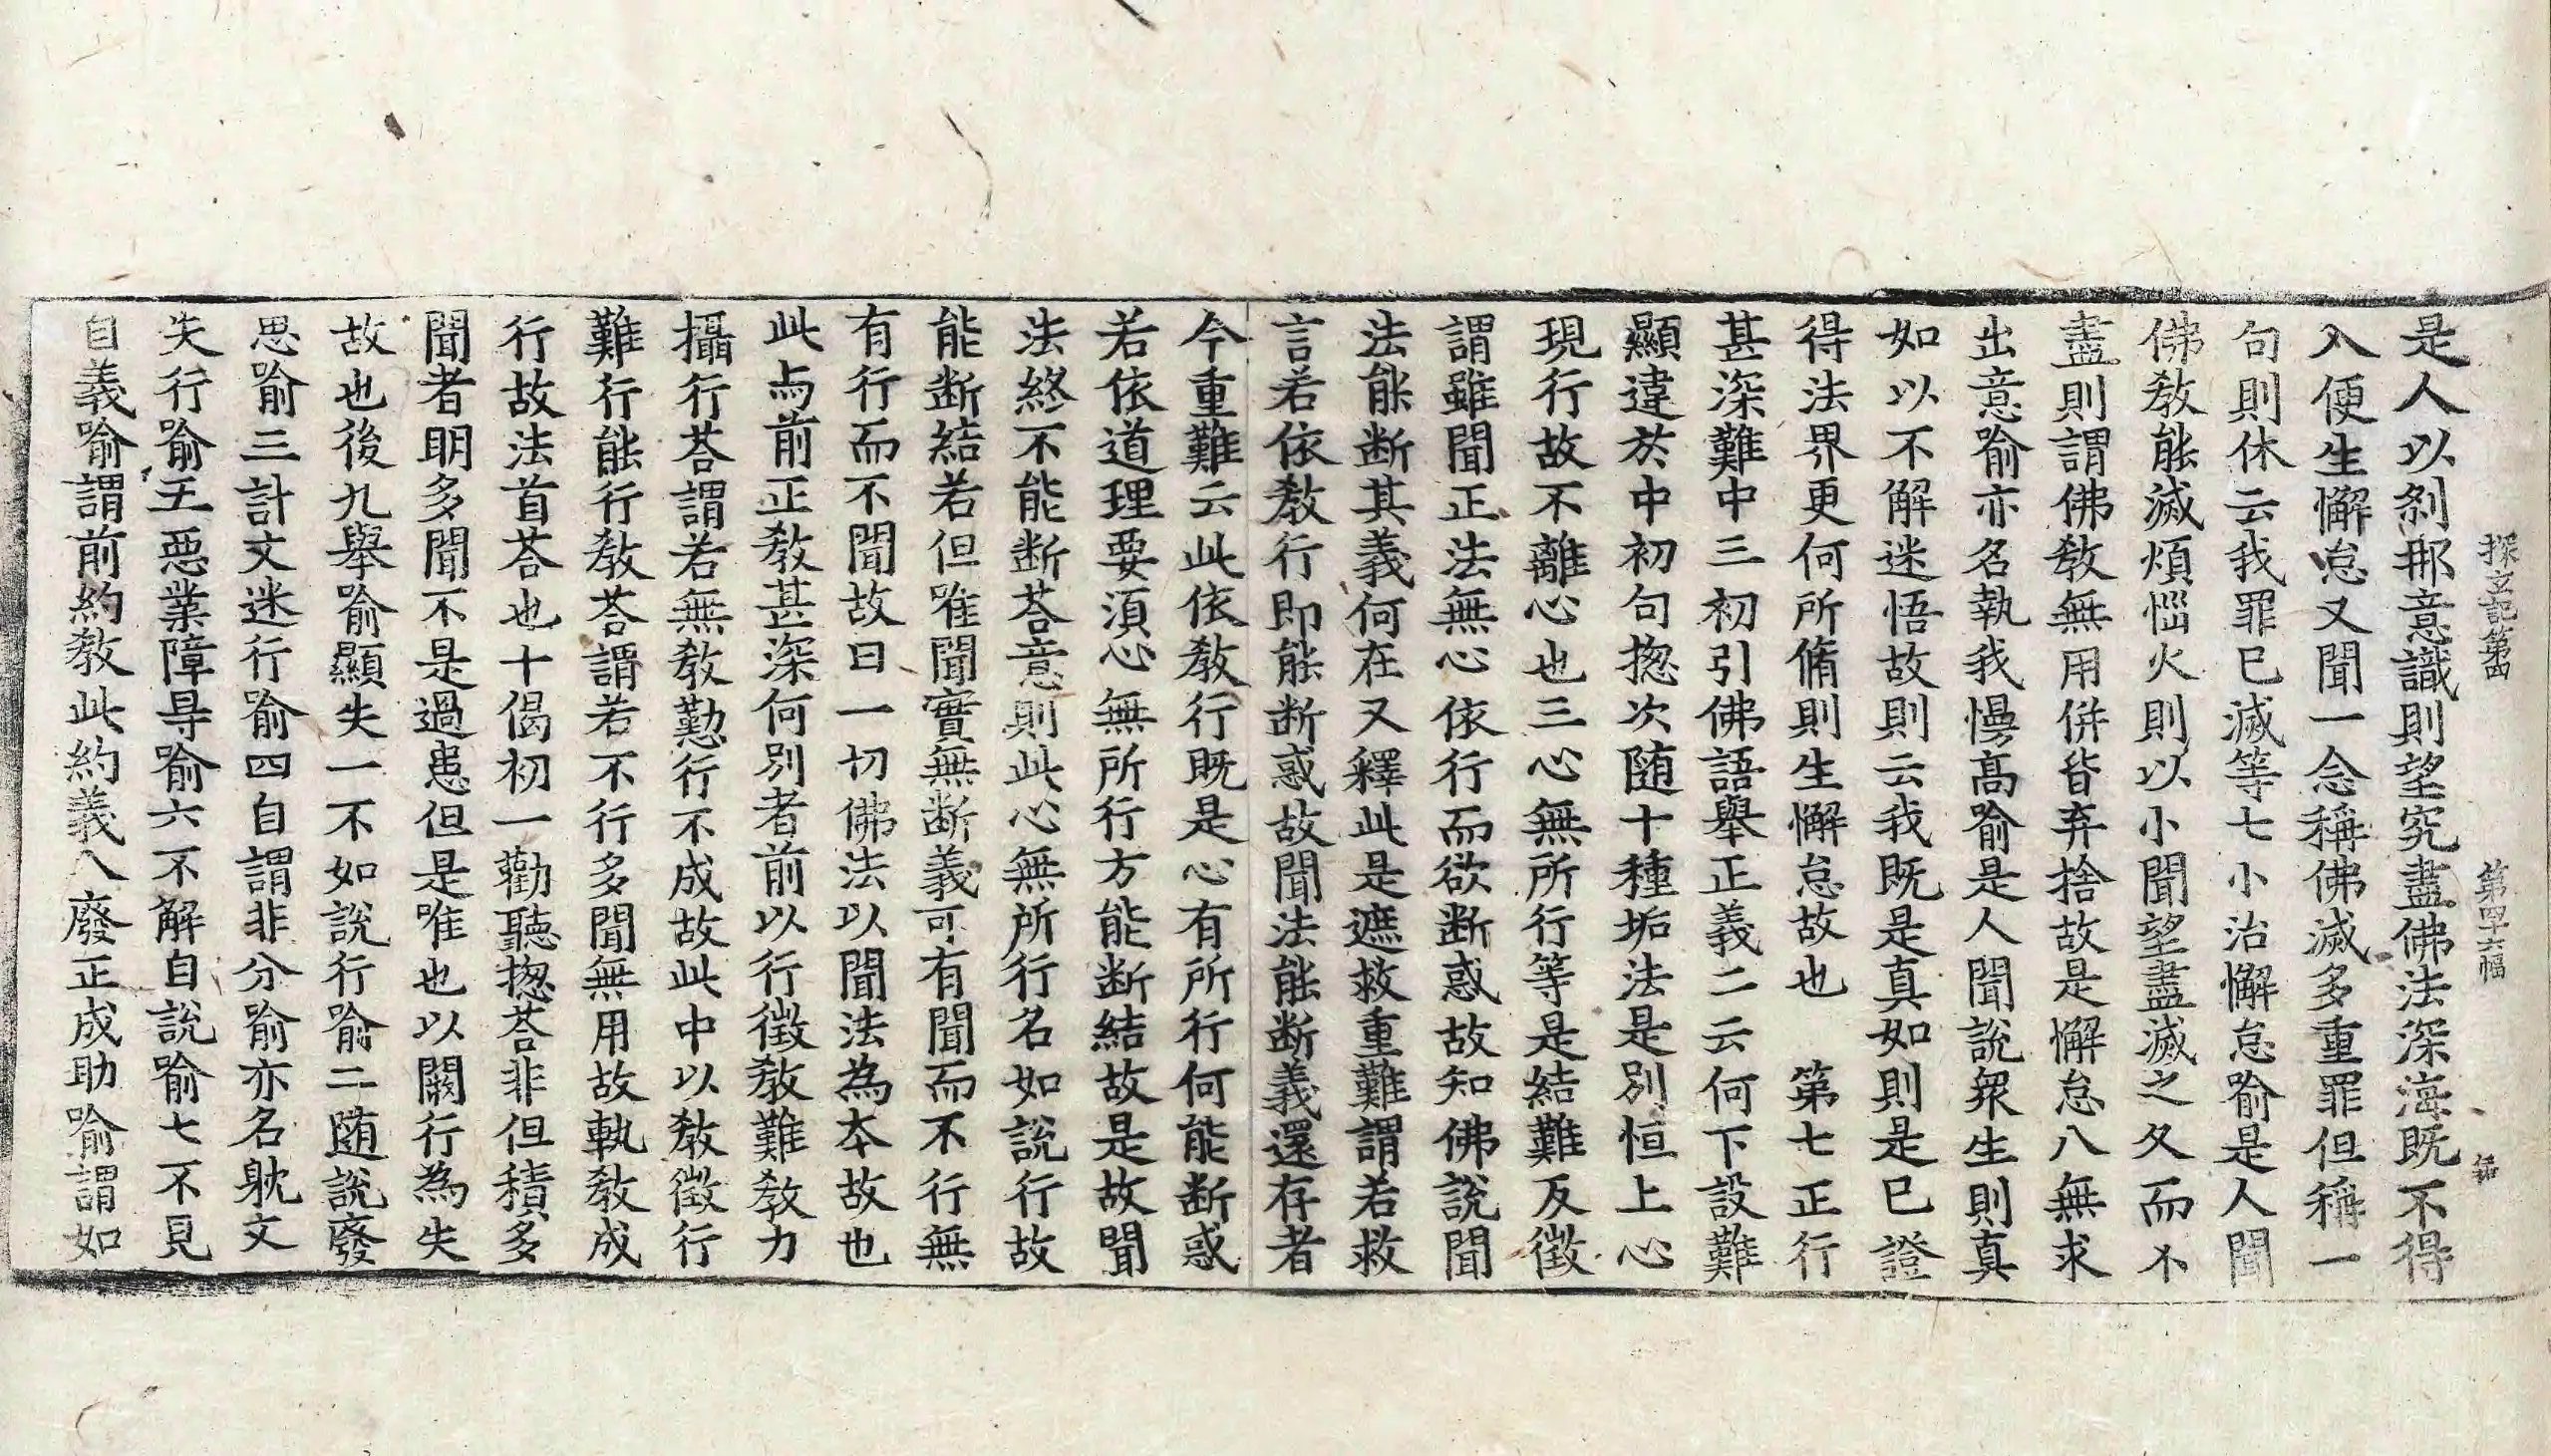 探玄記第四　第四十六幅
是人以剎那意識則望究盡佛法深海既不得
入便生懈怠又聞一念稱佛滅多重罪但稱一
句則休云我罪已滅等七小治懈怠喻是人聞
佛教能滅煩惱火則以小聞望盡滅之久而不
盡則謂佛教無用併皆弃捨故是懈怠八無求
出意喻亦名執我慢高喻是人聞說衆生則真
如以不解迷悟故則云我既是真如則是已證
得法界更何所脩則生懈怠故也　第七正行
甚深難中三初引佛語舉正義二云何下設難
顯違於中初句揔次随十種垢法是別恒上心
現行故不離心也三心無所行等是結難反徵
謂雖聞正法無心依行而欲断惑故知佛說聞
法能断其義何在又釋此是遮救重難謂若救
言若依教行即能断惑故聞法能断義還存者
今重難云此依教行既是心有所行何能断惑
若依道理要須心無所行方能断結故是故聞
法終不能断荅意則此心無所行名如說行故
能断結若但唯聞實無断義可有聞而不行無
有行而不聞故曰一切佛法以聞法為本故也
此与前正教甚深何別者前以行徵教難教力
攝行荅謂若無教懃行不成故此中以教徵行
難行能行教荅謂若不行多聞無用故執教成
行故法首荅也十偈初一勸聽揔荅非但積多
聞者明多聞不是過患但是唯也以闕行為失
故也後九舉喻顯失一不如說行喻二随說廢
思喻三計文迷行喻四自謂非分喻亦名躭文
失行喻五惡業障㝵喻六不解自說喻七不見
自義喻謂前約教此約義八廢正成助喻謂如